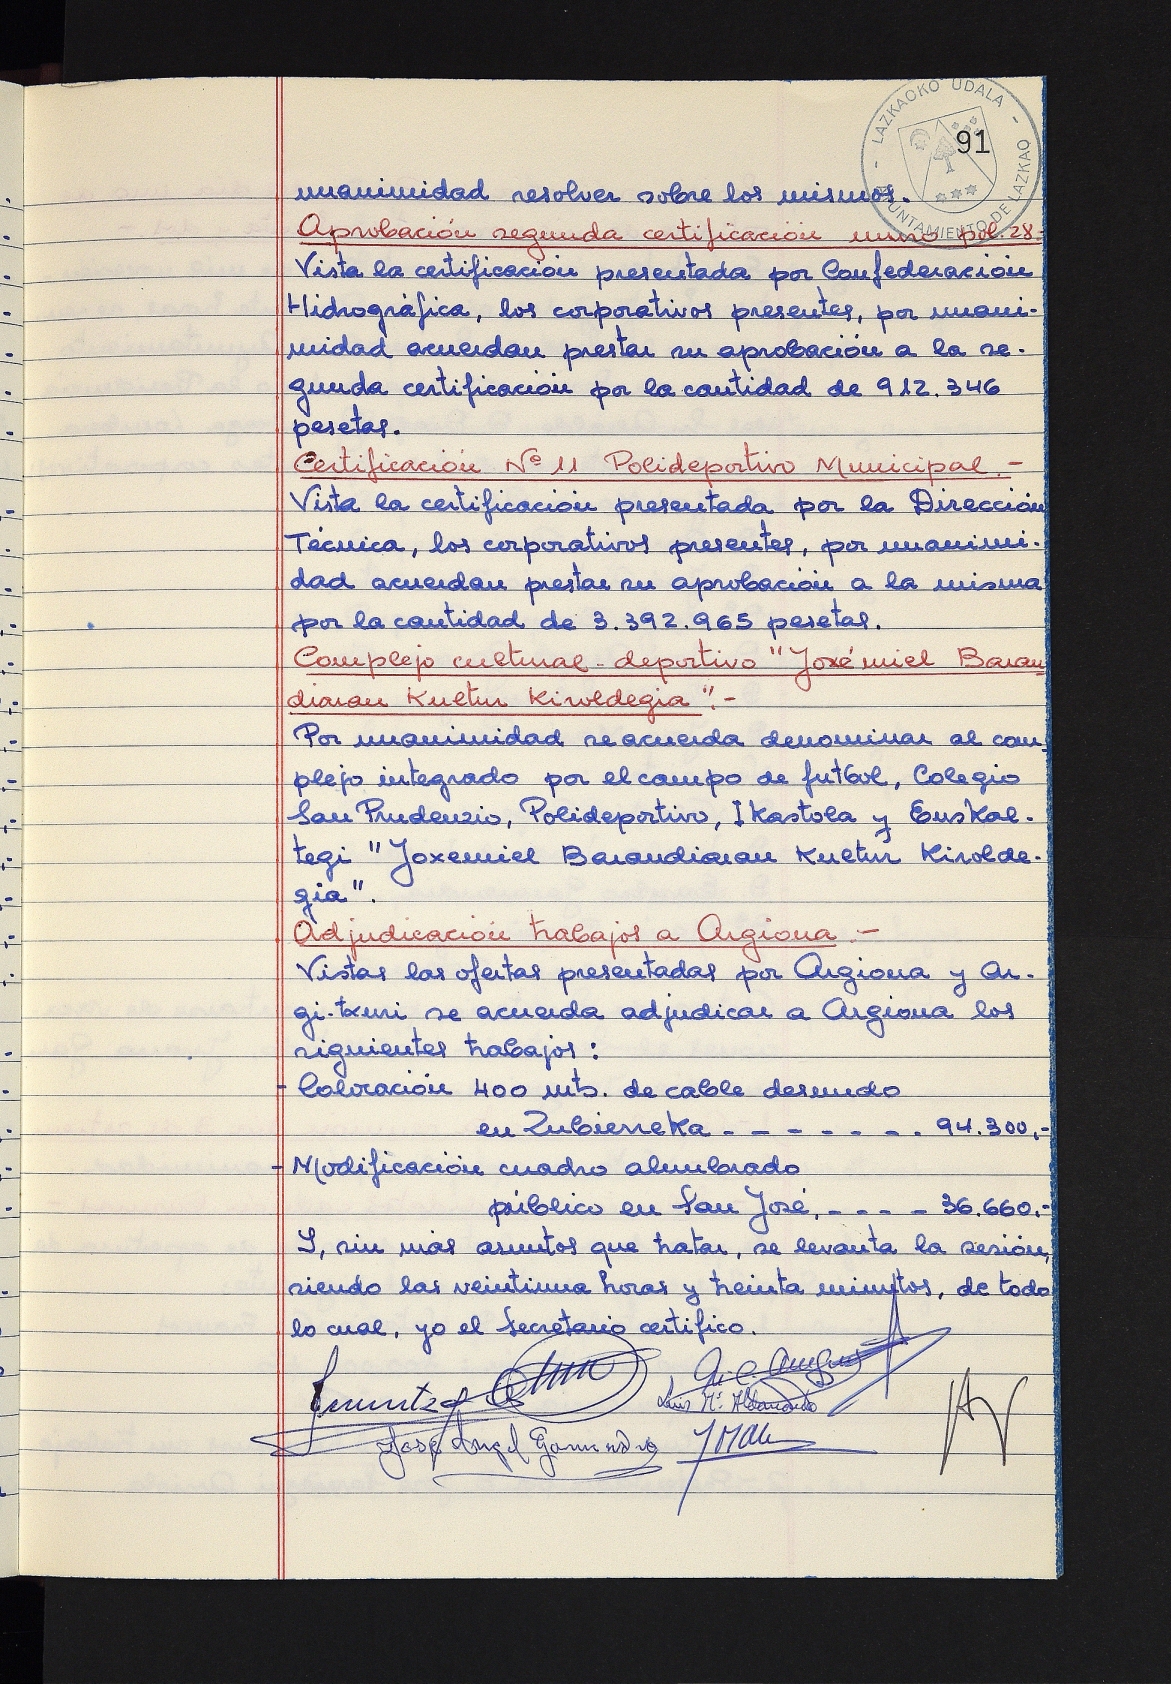 LAZKAOKO UDALA
AYUNTAMIENTO DE LAZKAO
91
unanimidad resolver sobre los mismos.
Aprobación segunda certificación muro pol. 28.-
Vista la certificación presentada por Confederación
Hidrográfica, los corporativos presentes, por unani-
midad acuerdan prestar su aprobación a la se-
gunda certificación por la cantidad de 912.346
pesetas.
Certificación Nº 11 Polideportivo Municipal.-
Vista la certificación presentada por la Dirección
Técnica, los corporativos presentes, por unanimi-
dad acuerdan prestar su aprobación a la misma
por la cantidad de 3.392.965 pesetas.
Complejo cultural-deportivo "Joxemiel Baran-
diaran Kultur Kiroldegia".-
Por unanimidad se acuerda denominar al com-
plejo integrado por el campo de futbol, Colegio
San Prudenzio, Polideportivo, Ikastola y Euskal-
tegi "Joxemiel Barandiaran Kultur Kirolde-
gia".
Adjudicación trabajos a Argiona.-
Vistas las ofertas presentadas por Argiona y Ar-
gi-txuri se acuerda adjudicar a Argiona los
siguientes trabajos:
- Colocación 400 mts. de cable desnudo
en Zubierreka - - - - - - - . 94.300,-
- Modificación cuadro alumbrado
público en San José, - - - - 36.660.-
Y, sin más asuntos que tratar, se levanta la sesión,
siendo las veintiuna horas y treinta minutos, de todo
lo cual, yo el Secretario certifico.
Luis Mª Aldanondo
José Angel Garmendia